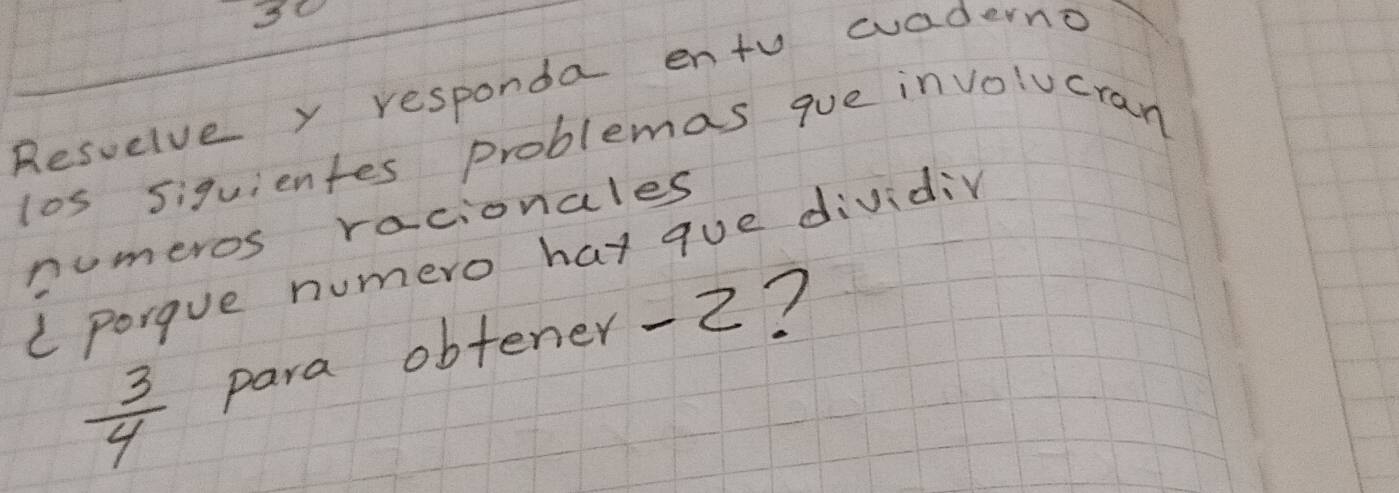 30
Resuelve y responda en tu cuaderno
los siguientes problemas que involucran
numeros racionales
¿ porque numero hay que dividir
3/4 para obtener -2?